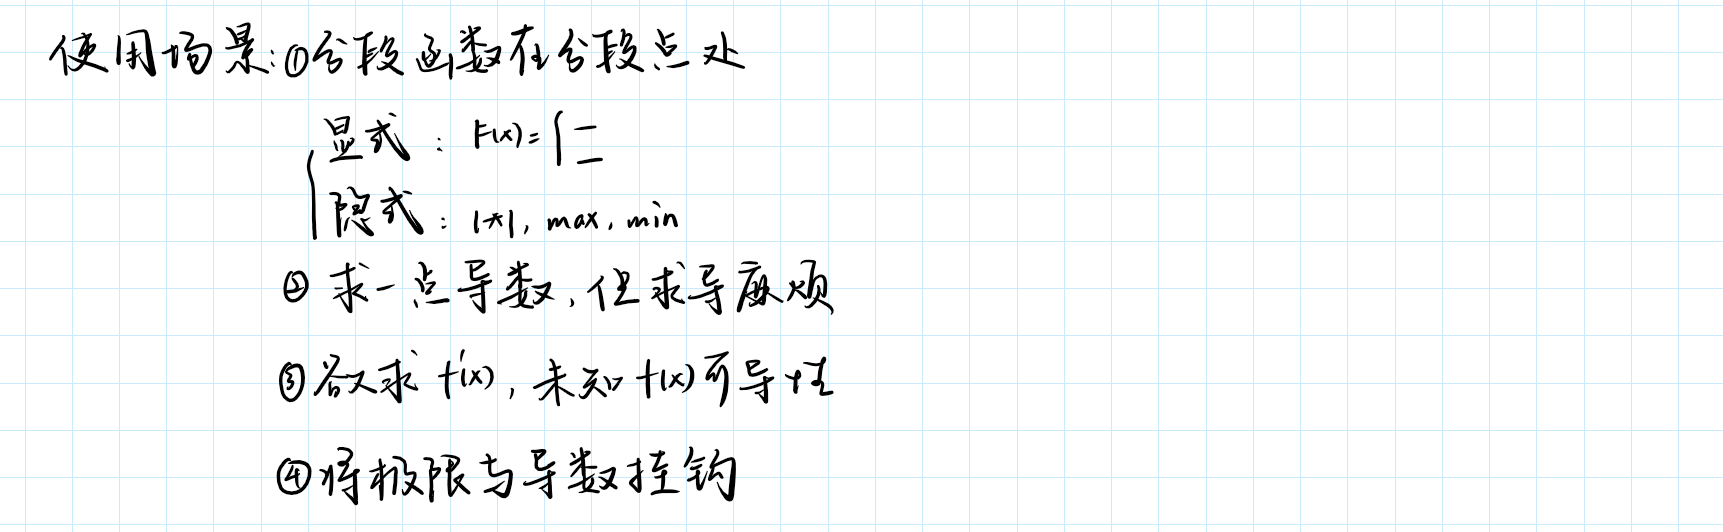 使用场景:①分段函数在分段点处
显式: F(x)={
隐式: |*|, max, min
② 求一点导数,但求导麻烦
③欲求 f'(x), 未知 f(x)可导性
④将极限与导数挂钩